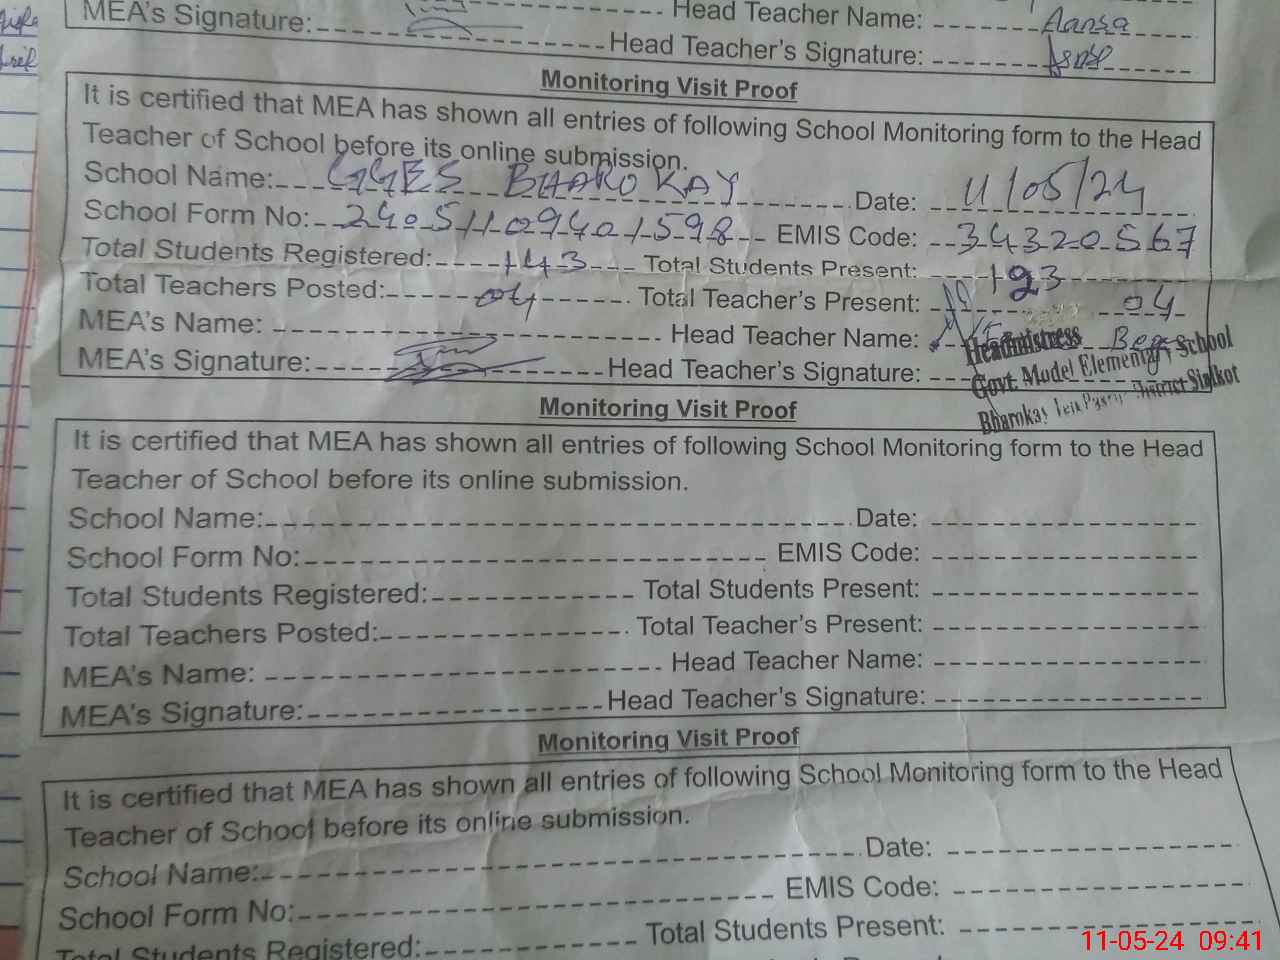 MEA's Signature: Head Teacher Name: Aansa
Head Teacher's Signature:
Monitoring Visit Proof
It is certified that MEA has shown all entries of following School Monitoring form to the Head
Teacher of School before its online submission.
School Name: GGES BHAROKAY Date: 11/05/24
School Form No: 24051109401598 EMIS Code: 34320567
Total Students Registered: 143 Total Students Present: 123
Total Teachers Posted: 04 Total Teacher's Present: 04
MEA's Name: Head Teacher Name:
MEA's Signature: Head Teacher's Signature:
Headmistress
Govt. Model Elementary School
Bharokay District Sialkot
Monitoring Visit Proof
It is certified that MEA has shown all entries of following School Monitoring form to the Head
Teacher of School before its online submission.
School Name: Date:
School Form No: EMIS Code:
Total Students Registered: Total Students Present:
Total Teachers Posted: Total Teacher's Present:
MEA's Name: Head Teacher Name:
MEA's Signature: Head Teacher's Signature:
Monitoring Visit Proof
It is certified that MEA has shown all entries of following School Monitoring form to the Head
Teacher of School before its online submission.
School Name: Date:
School Form No: EMIS Code:
Total Students Registered: Total Students Present:
11-05-24 09:41